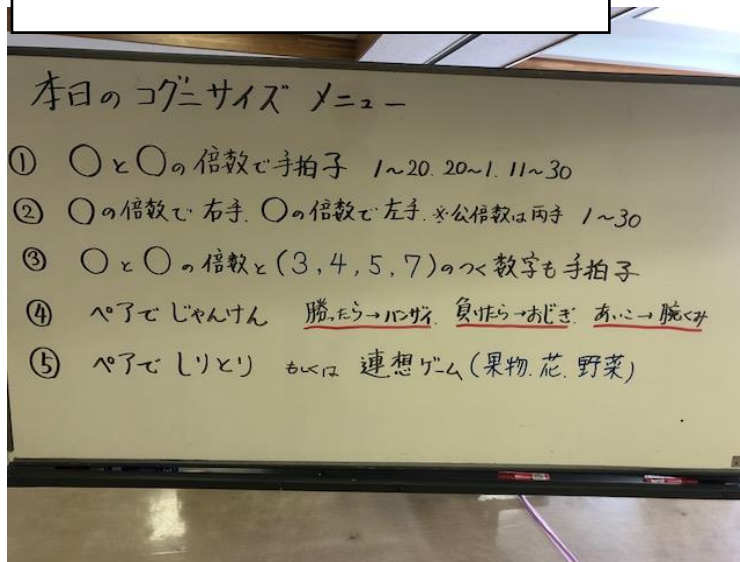 本日のコグニサイズ メニュー
① ○と○の倍数で手拍子 1~20. 20~1. 11~30
② ○の倍数で右手. ○の倍数で左手. ※公倍数は両手 1~30
③ ○と○の倍数と(3, 4, 5, 7)のつく数字も手拍子
④ ペアで じゃんけん 勝ったら→バンザイ. 負けたら→おじぎ. あいこ→腕くみ
⑤ ペアで しりとり もしくは 連想ゲーム(果物. 花. 野菜)